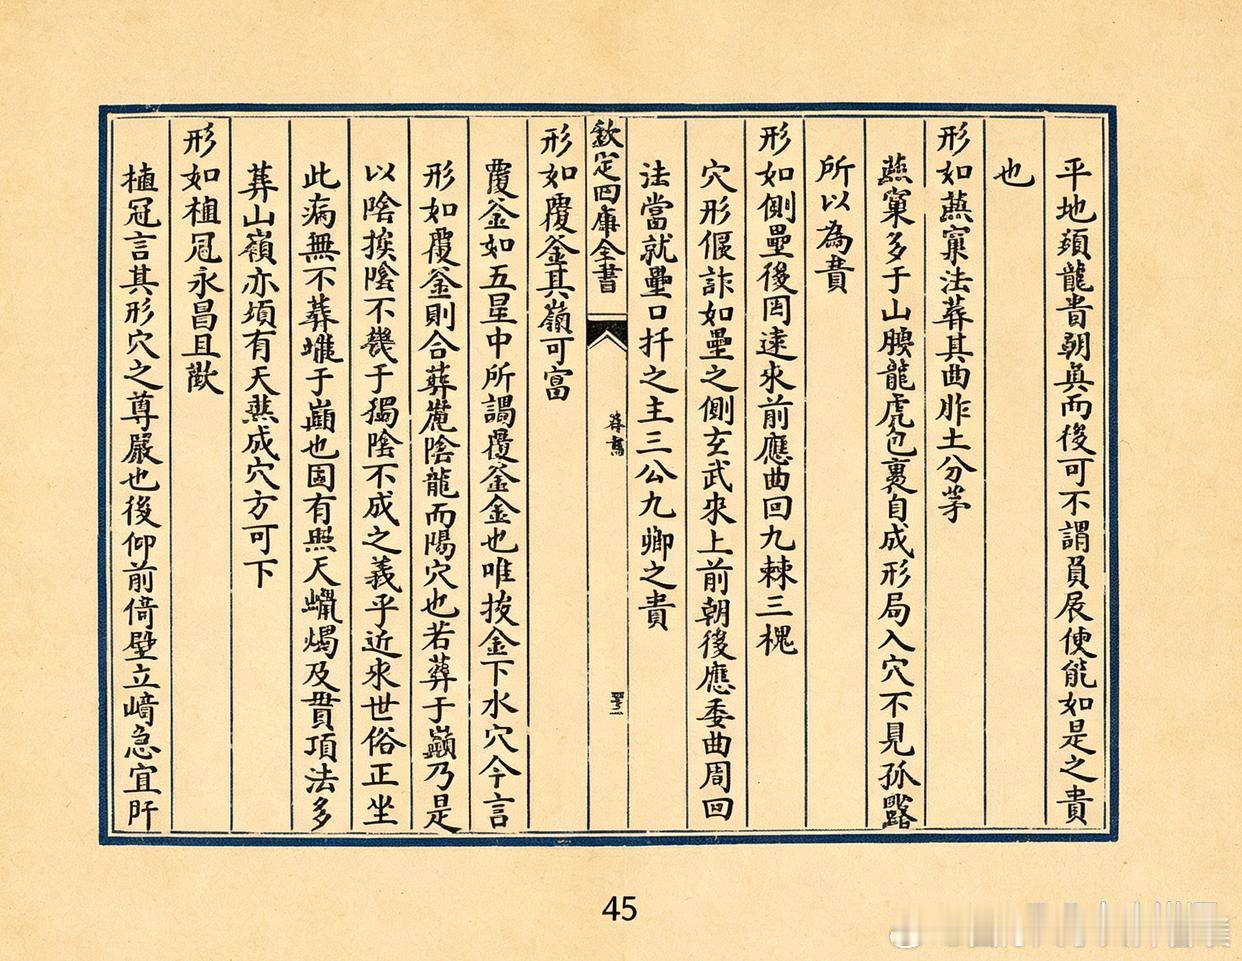 平地頭龍貴朝真而後可不謂負扆使能如是之貴
也
形如燕窠法葬其曲胙土分茅
燕窠多于山腰龍虎包裹自成形局入穴不見孤露
所以為貴
形如側壘後罔逺來前應曲回九棘三槐
穴形偃詐如壘之側玄武來上前朝後應委曲周回
法當就壘口扦之主三公九卿之貴
欽定四庫全書
葬書
形如覆釜其嶺可富
覆釜如五星中所謂覆釜金也唯拔金下水穴今言
形如覆釜則合葬陰龍而陽穴也若葬于巔乃是
以陰挨陰不幾于獨陰不成之義乎近來世俗正坐
此病無不葬于巔也固有照天蠟燭及貫頂法多
葬山嶺亦須有天然成穴方可下
形如植冠永昌且歡
植冠言其形穴之尊嚴也後仰前倚壁立崎急宜
45